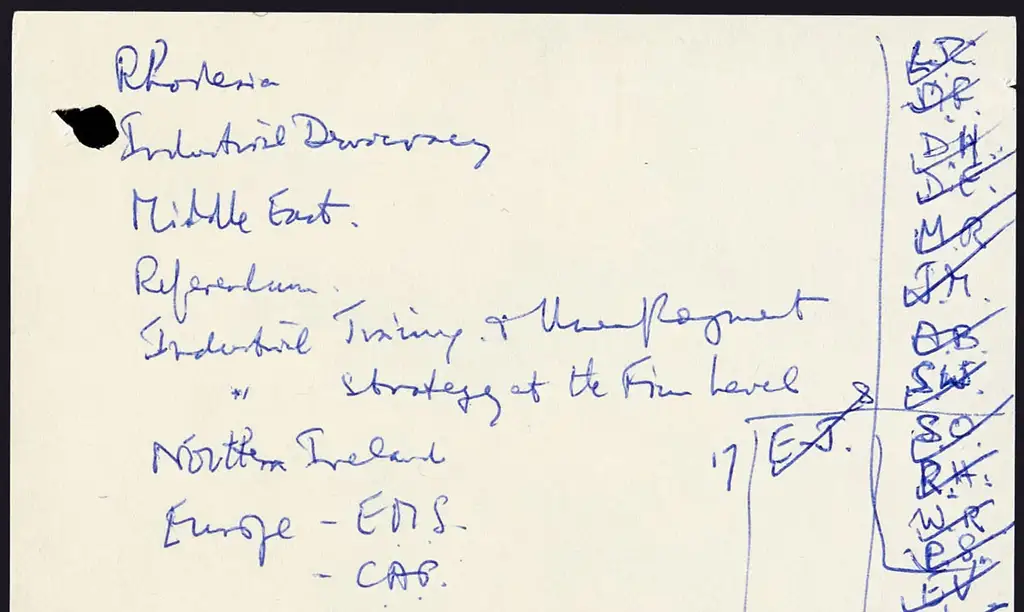 Rhodesia
Industrial Democracy
Middle East.
Referendum.
Industrial Training & Unemployment
" Strategy at the Firm Level
Northern Ireland
Europe - EMS.
- CAP.
8
17 E.J.
D.F.
D.H.
D.E.
M.R.
J.M.
A.B.
S.W.
S.O.
R.H.
W.R.
P.S.